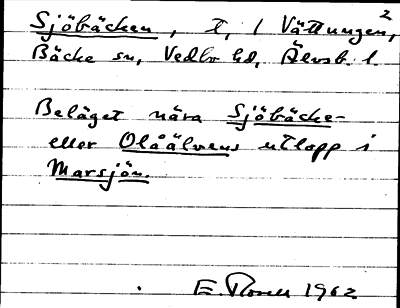 Sjöbäcken, t, / Vättungen,²
Bäcke sn, Vedbo hd, Älvsb. l
Beläget nära Sjöbäcke-
eller Olåälvens utlopp i
Marsjön.
E. 1962